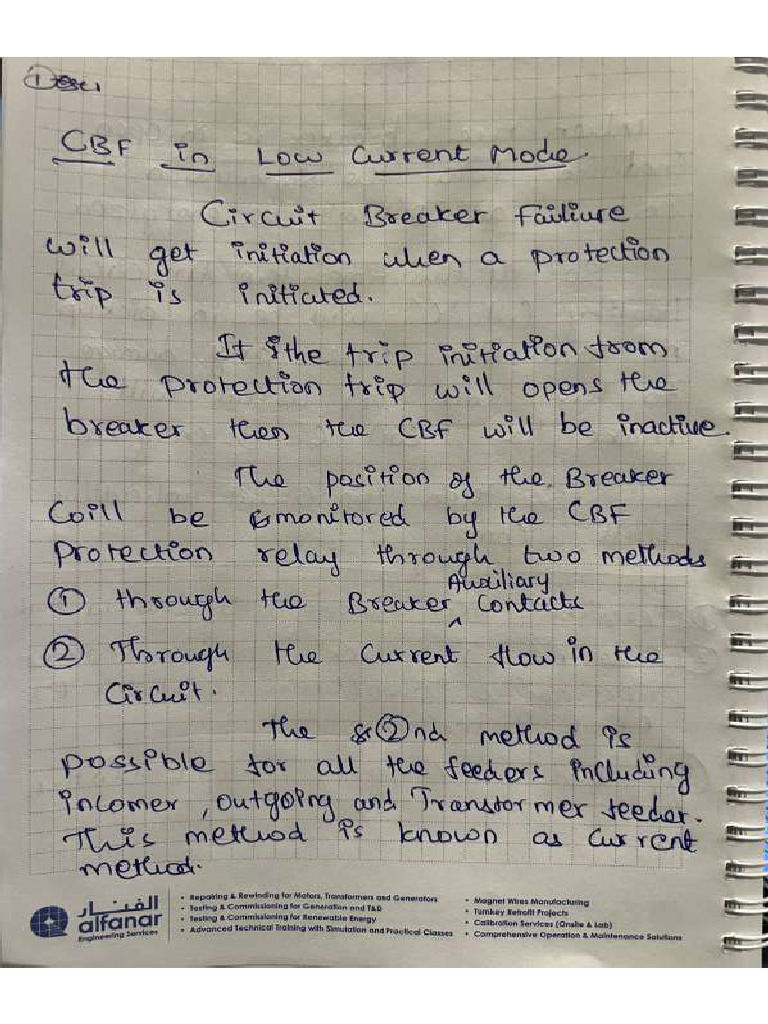 CBF in Low Current Mode.
Circuit Breaker Failiure
will get initiation when a protection
trip is initiated.
If the trip initiation from
the protection trip will opens the
breaker then the CBF will be inactive.
The position of the Breaker
will be monitored by the CBF
Protection relay through two methods
① through the Breaker Auxiliary Contacts
② Through the Current flow in the
Circuit.
The ②nd method is
possible for all the feeders including
incomer, outgoing and Transformer feeder.
This method is known as Current
method.
الفنار
alfanar
Engineering Services
• Repairing & Rewinding for Motors, Transformers and Generators
• Testing & Commissioning for Generation and T&D
• Testing & Commissioning for Renewable Energy
• Advanced Technical Training with Simulation and Practical Classes
• Magnet Wires Manufacturing
• Turnkey Retrofit Projects
• Calibration Services (Onsite & Lab)
• Comprehensive Operation & Maintenance Solutions